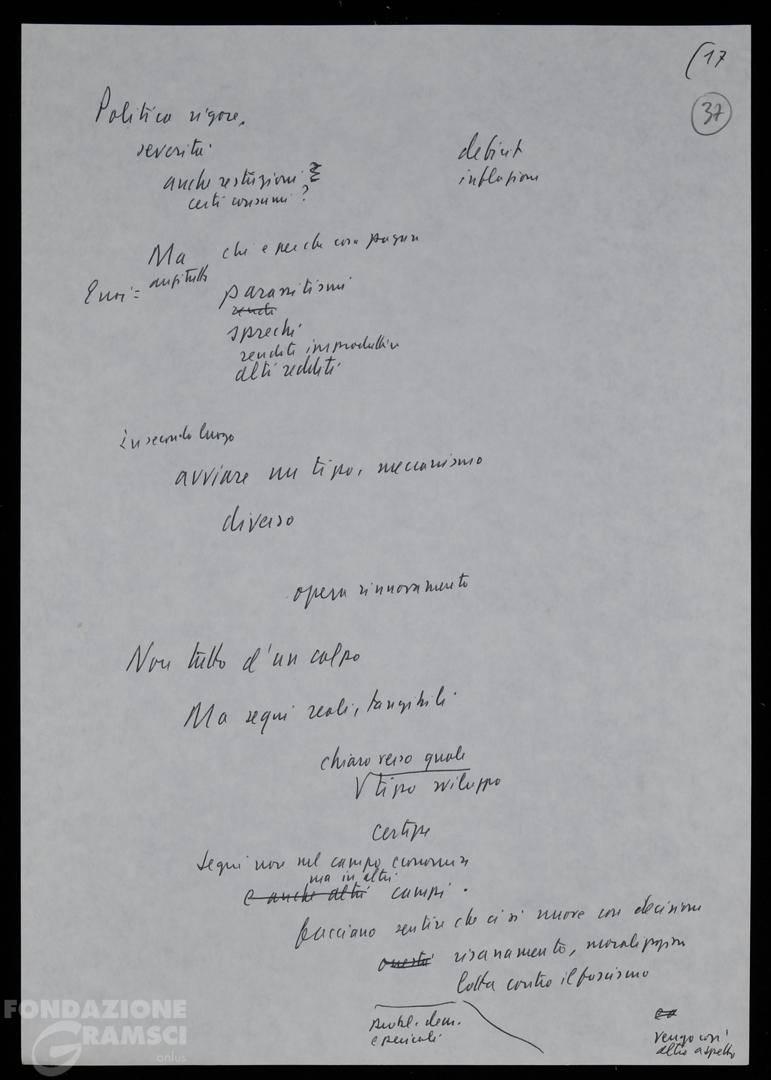 (17
37
Politica rigore,
severità
deficit
anche restrizioni
inflazione
certi consumi?
Ma chi e perché cosa pagare
anzitutto
Errori =
parassitismi
rendite
sprechi
rendite improduttive
alti redditi
in secondo luogo
avviare un tipo, meccanismo
diverso
opera rinnovamento
Non tutto d'un colpo
Ma segni reali, tangibili
chiaro verso quale
tipo sviluppo
certezze
segni non nel campo economia
ma in altri
e anche altri campi.
facciano sentire che ci si muove con decisione
onestà risanamento, moralizzazione
lotta contro il fascismo
probl. dem.
e pericoli
vengo così
altro aspetto
FONDAZIONE
GRAMSCI
onlus